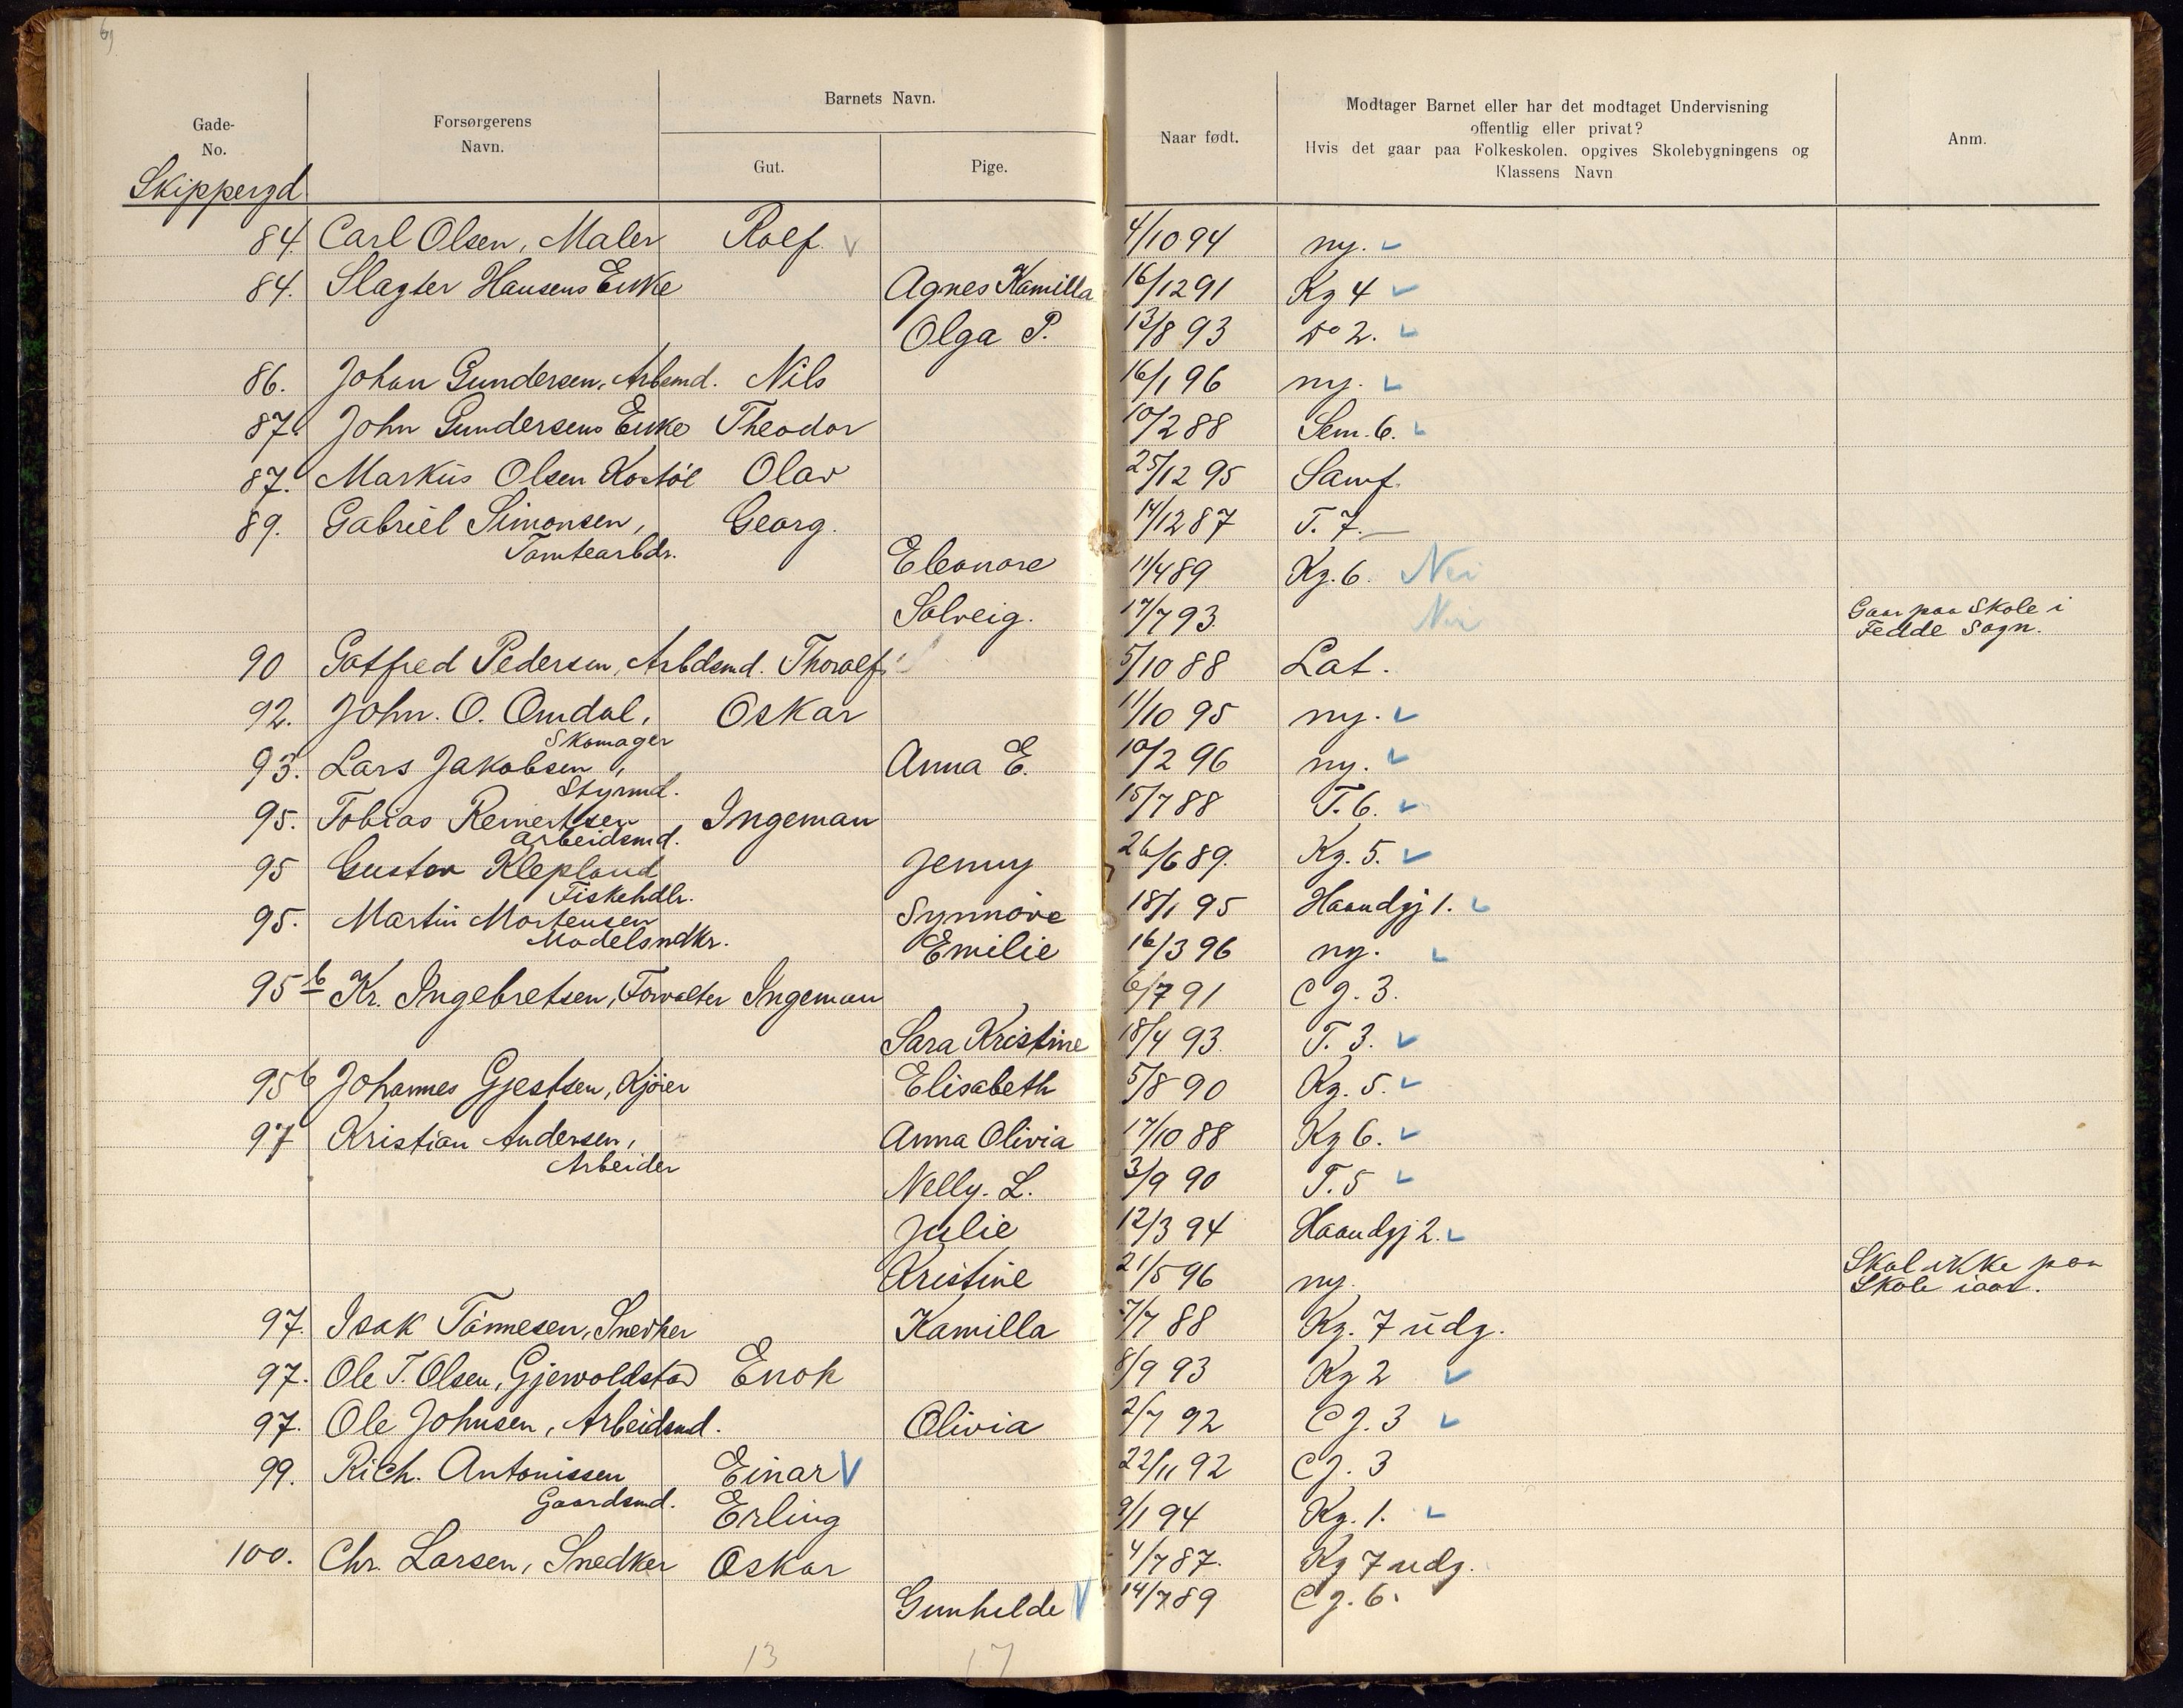 6)
Gade-No.
Forsørgerens Navn.
Barnets Navn.
Gut.
Pige.
Naar født.
Modtager Barnet eller har det modtaget Undervisning
offentlig eller privat?
Hvis det gaar paa Folkeskolen. opgives Skolebygningens og
Klassens Navn
Anm.
Skippergd
84. Carl Olsen, Maler Rolf 4/10 94 ny.
84. Slagter Hansens Enke Agnes Kamilla 16/12 91 Kg 4
Olga P. 13/8 93 do 2.
86. Johan Gundersen, Arbemd. Nils 16/1 96 ny.
87. John Gundersens Enke Theodor 10/2 88 Sem. 6.
87. Markus Olsen Kostöl Olav 25/12 95 Samf.
89. Gabriel Simonsen, Georg. 14/12 87 T. 7.
Tomtearbdr.
Eleonore 11/4 89 Kg. 6. Nei
Solveig. 17/7 93. Nei Gaar paa Skole i
Fedde Sogn.
90 Gotfred Pedersen, Arbdsmd. Thoralf 5/10 88 Lat.
92. John. O. Omdal, Oskar 11/10 95 ny.
Skomager
93. Lars Jakobsen, Anna E. 10/2 96 ny.
Styrmd.
95. Tobias Reinertsen Ingeman 15/7 88 T. 6.
Arbeidsmd.
95 Gustav Klepland Jenny 26/6 89. Kg. 5.
Fiskehdlr.
95. Martin Mortensen Synnöve 18/1 95 Haandgj 1.
Modelsndkr. Emilie 16/3 96 ny.
95 b Kr. Ingebretsen, Forvalter Ingeman 6/7 91 C J. 3.
Sara Kristine 18/4 93. T. 3.
95 b Johannes Gjestsen, Kjöier Elisabeth 5/8 90 Kg. 5.
97 Kristian Andersen, Anna Olivia 17/10 88 Kg 6.
Arbeider
Nelly. L. 3/9 90 T. 5
Julie 12/3 94 Haandgj 2.
Kristine 21/5 96 ny. Skal ikke paa
Skole iaar.
97. Isak Tönnesen, Snedker Kamilla 7/7 88 Kg. 7 udg.
97. Ole T. Olsen, Gjervoldstad Enok 8/9 93 Kg 2
97. Ole Johnsen, Arbeidsmd. Olivia 2/7 92 C J. 3
99. Rich. Antonissen Einar 22/11 92 C J. 3
Gaardsmd. Erling 9/1 94 Kg. 1.
100. Chr. Larsen, Snedker Oskar 4/7 87. Kg 7 udg.
Gunhilde 14/7 89 C J. 6.
13 17